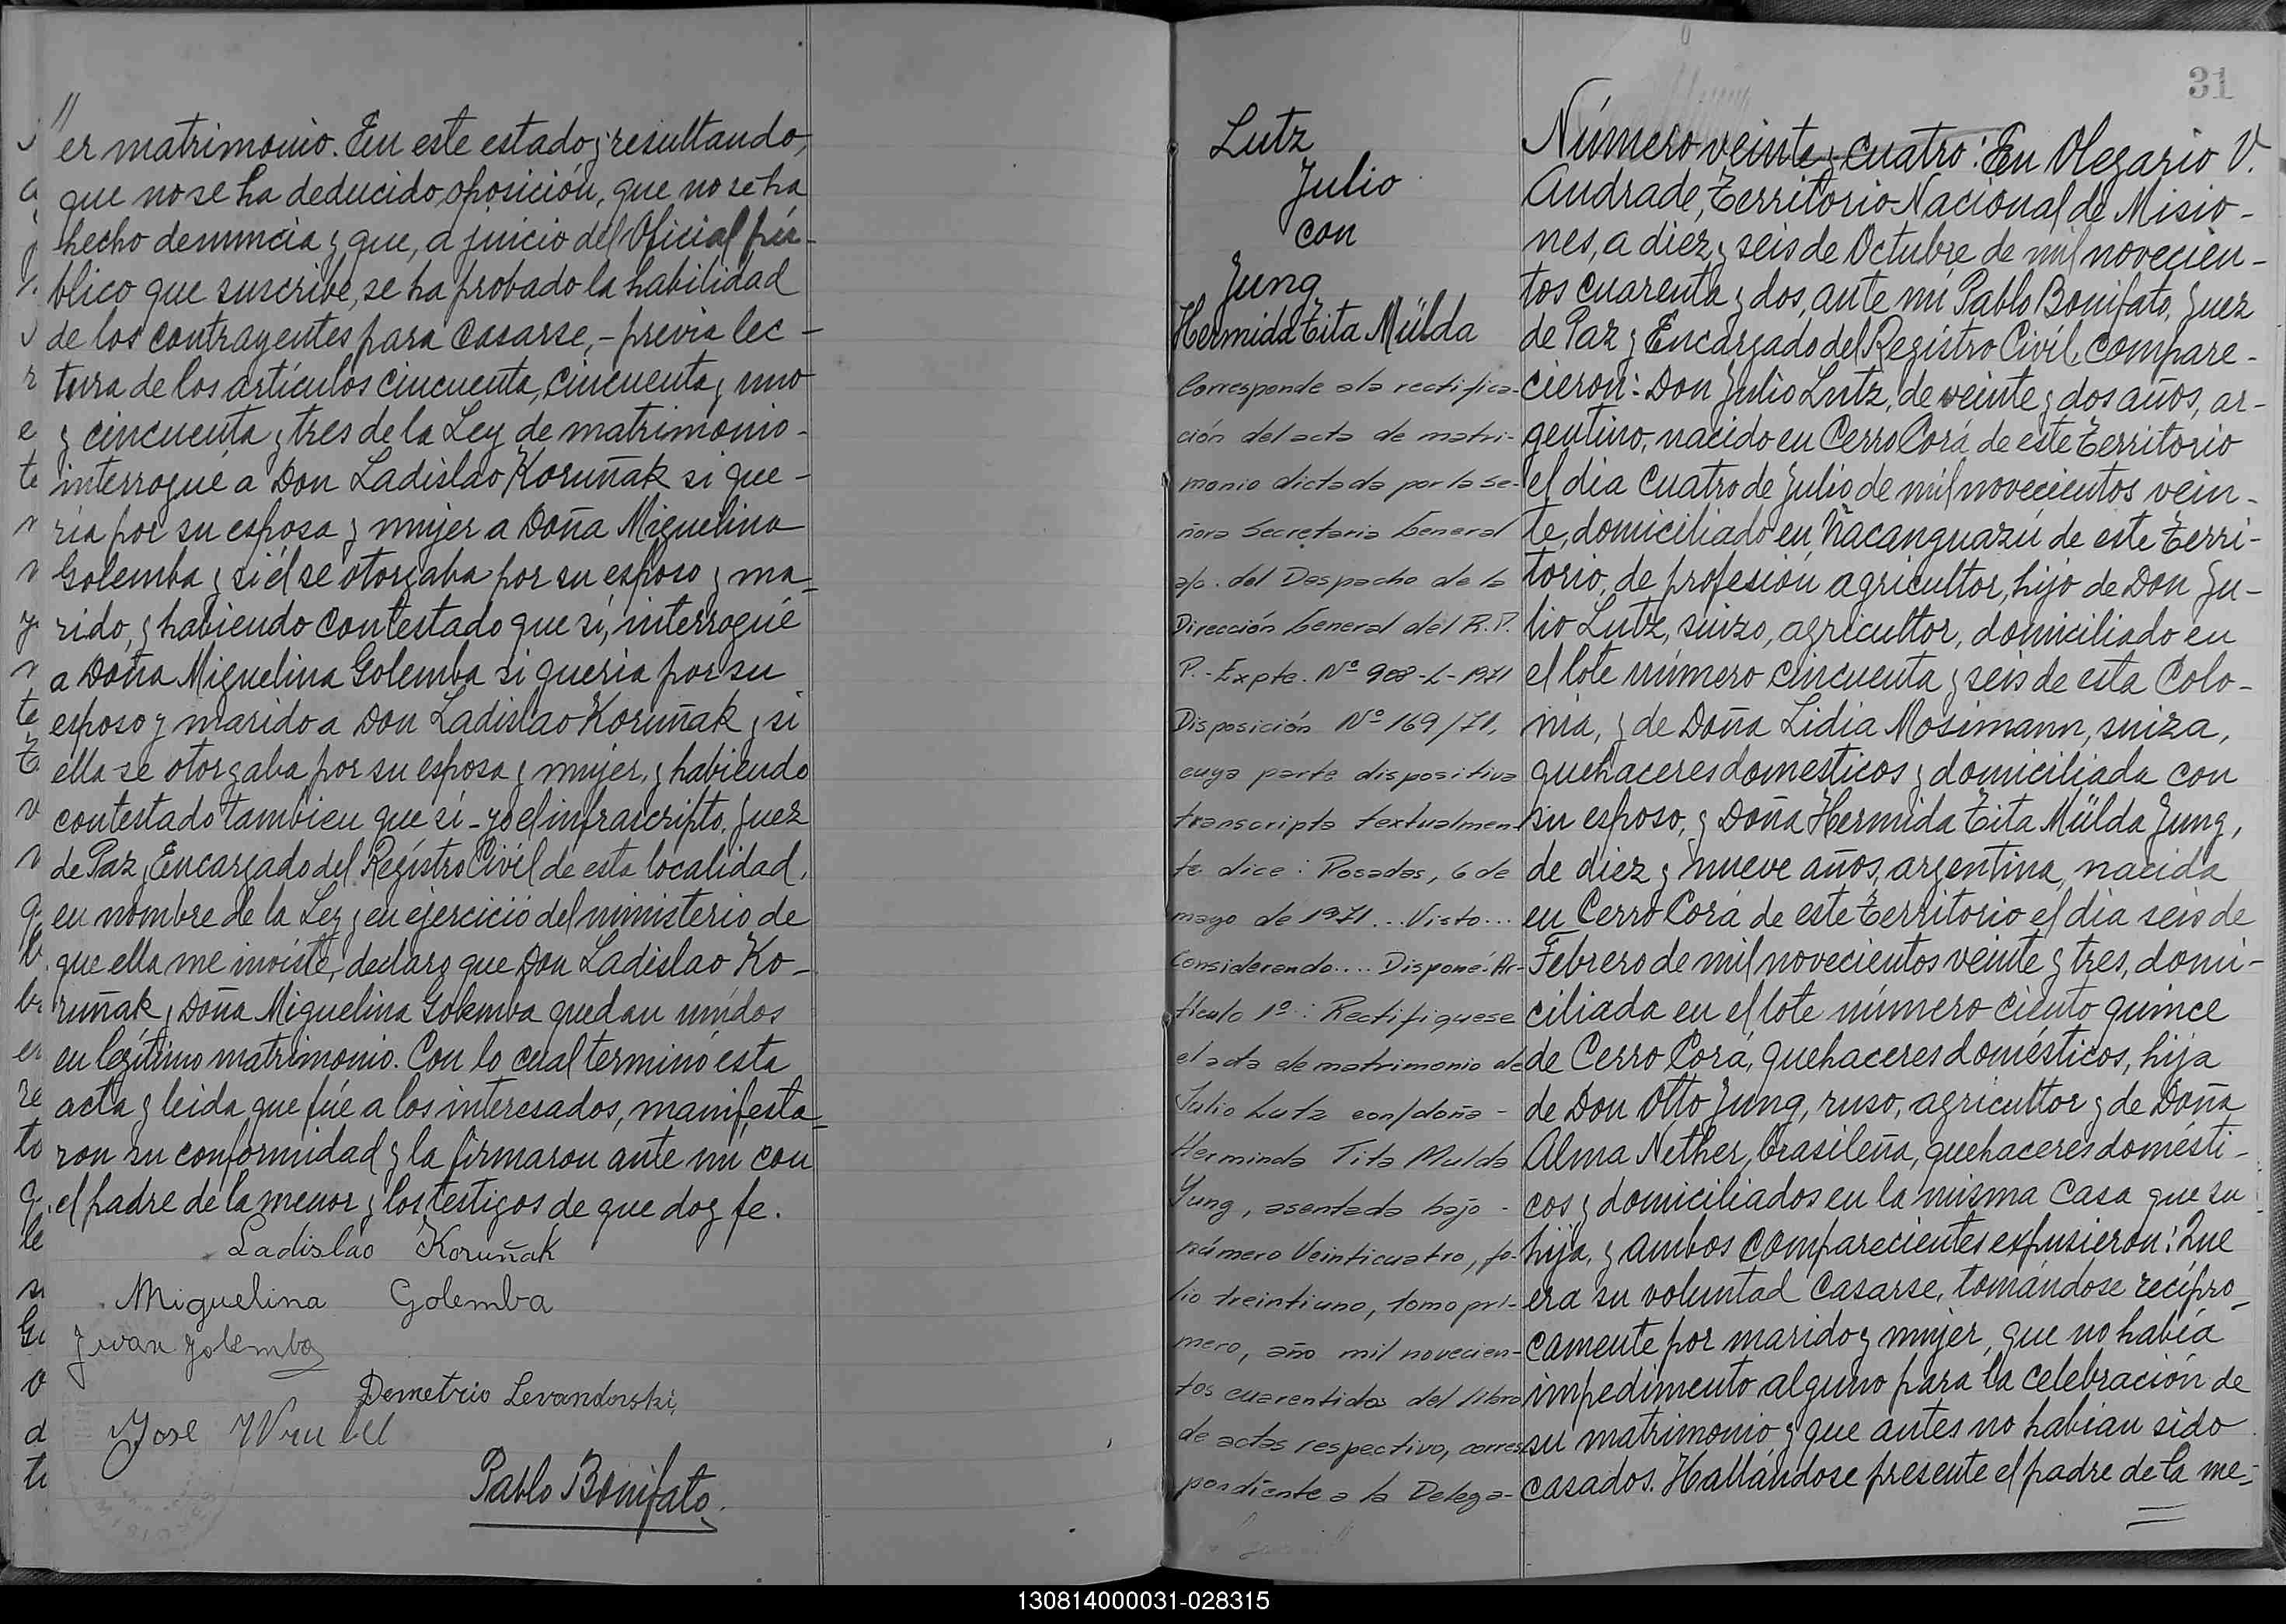 er matrimonio. En este estado y resultando,
que no se ha deducido oposición, que no se ha
hecho denuncia y que, a juicio del Oficial Pú-
blico que suscribe, se ha probado la habilidad
de los contrayentes para casarse, - previa lec-
tura de los artículos cincuenta, cincuenta y uno
y cincuenta y tres de la Ley de matrimonio-
interrogué a Don Ladislao Koruñak si que-
ría por su esposa y mujer a Doña Miguelina
Golemba y si él se otorgaba por su esposo y ma-
rido, y habiendo contestado que si, interrogué
a Doña Miguelina Golemba si quería por su
esposo y marido a Don Ladislao Koruñak y si
ella se otorgaba por su esposa y mujer, y habiendo
contestado tambien que si - yo el infrascripto, Juez
de Paz y Encargado del Registro Civil de esta localidad,
en nombre de la Ley y en ejercicio del ministerio de
que ella me inviste, declaro que Don Ladislao Ko-
ruñak y Doña Miguelina Golemba quedan unidos
en legítimo matrimonio. Con lo cual terminó esta
acta y leida que fué a los interesados, manifesta-
ron su conformidad y la firmaron ante mi con
el padre de la menor y los testigos de que doy fe.
Ladislao Koruñak
Miguelina Golemba
Jwan Golemba
Demetrio Levandorski
Jose Wrubel
Pablo Bonifato.
31
Lutz
Julio
con
Jung
Hermida Tita Mülda
Corresponde a la rectifica-
ción del acta de matri-
monio dictada por la Se-
ñora Secretaria General
a/c. del Despacho de la
Dirección General del R.P.
P.-Expte. Nº 908-L-1971
Disposición Nº 169/71,
cuya parte dispositiva
transcripta textualmen-
te dice: Posadas, 6 de
mayo de 1971... Visto...
Considerando.... Dispone: Ar-
tículo 1º: Rectifiquese
el acta de matrimonio de
Julio Lutz con/doña -
Herminda Tita Mulda
Yung, asentada bajo -
número Veinticuatro, fo-
lio treintiuno, tomo pri-
mero, año mil novecien-
tos cuarentidos del libro
de actas respectivo, corres-
pondiente a la Delega-
Número veinte y cuatro: En Olegario V.
Andrade, Territorio Nacional de Misio-
nes, a diez y seis de Octubre de mil novecien-
tos cuarenta y dos, ante mi Pablo Bonifato, Juez
de Paz y Encargado del Registro Civil, compare-
cieron: Don Julio Lutz, de veinte y dos años, ar-
gentino, nacido en Cerro Corá de este Territorio
el día cuatro de Julio de mil novecientos vein-
te, domiciliado en Ñacanguazú de este Terri-
torio, de profesión agricultor, hijo de Don Ju-
lio Lutz, suizo, agricultor, domiciliado en
el lote número cincuenta y seis de esta Colo-
nia, y de Doña Lidia Mosimann, suiza,
quehaceres domesticos y domiciliada con
su esposo, y Doña Hermida Tita Mülda Jung,
de diez y nueve años, argentina, nacida
en Cerro Corá de este Territorio el día seis de
Febrero de mil novecientos veinte y tres, domi-
ciliada en el lote número ciento quince
de Cerro Corá, quehaceres domésticos, hija
de Don Otto Jung, ruso, agricultor y de Doña
Alma Nether, brasileña, quehaceres domésti-
cos y domiciliados en la misma casa que su
hija, y ambos comparecientes expusieron: Que
era su voluntad casarse, tomándose recípro-
camente por marido y mujer, que no había
impedimento alguno para la celebración de
su matrimonio y que antes no habían sido
casados. Hallándose presente el padre de la me-
130814000031-028315